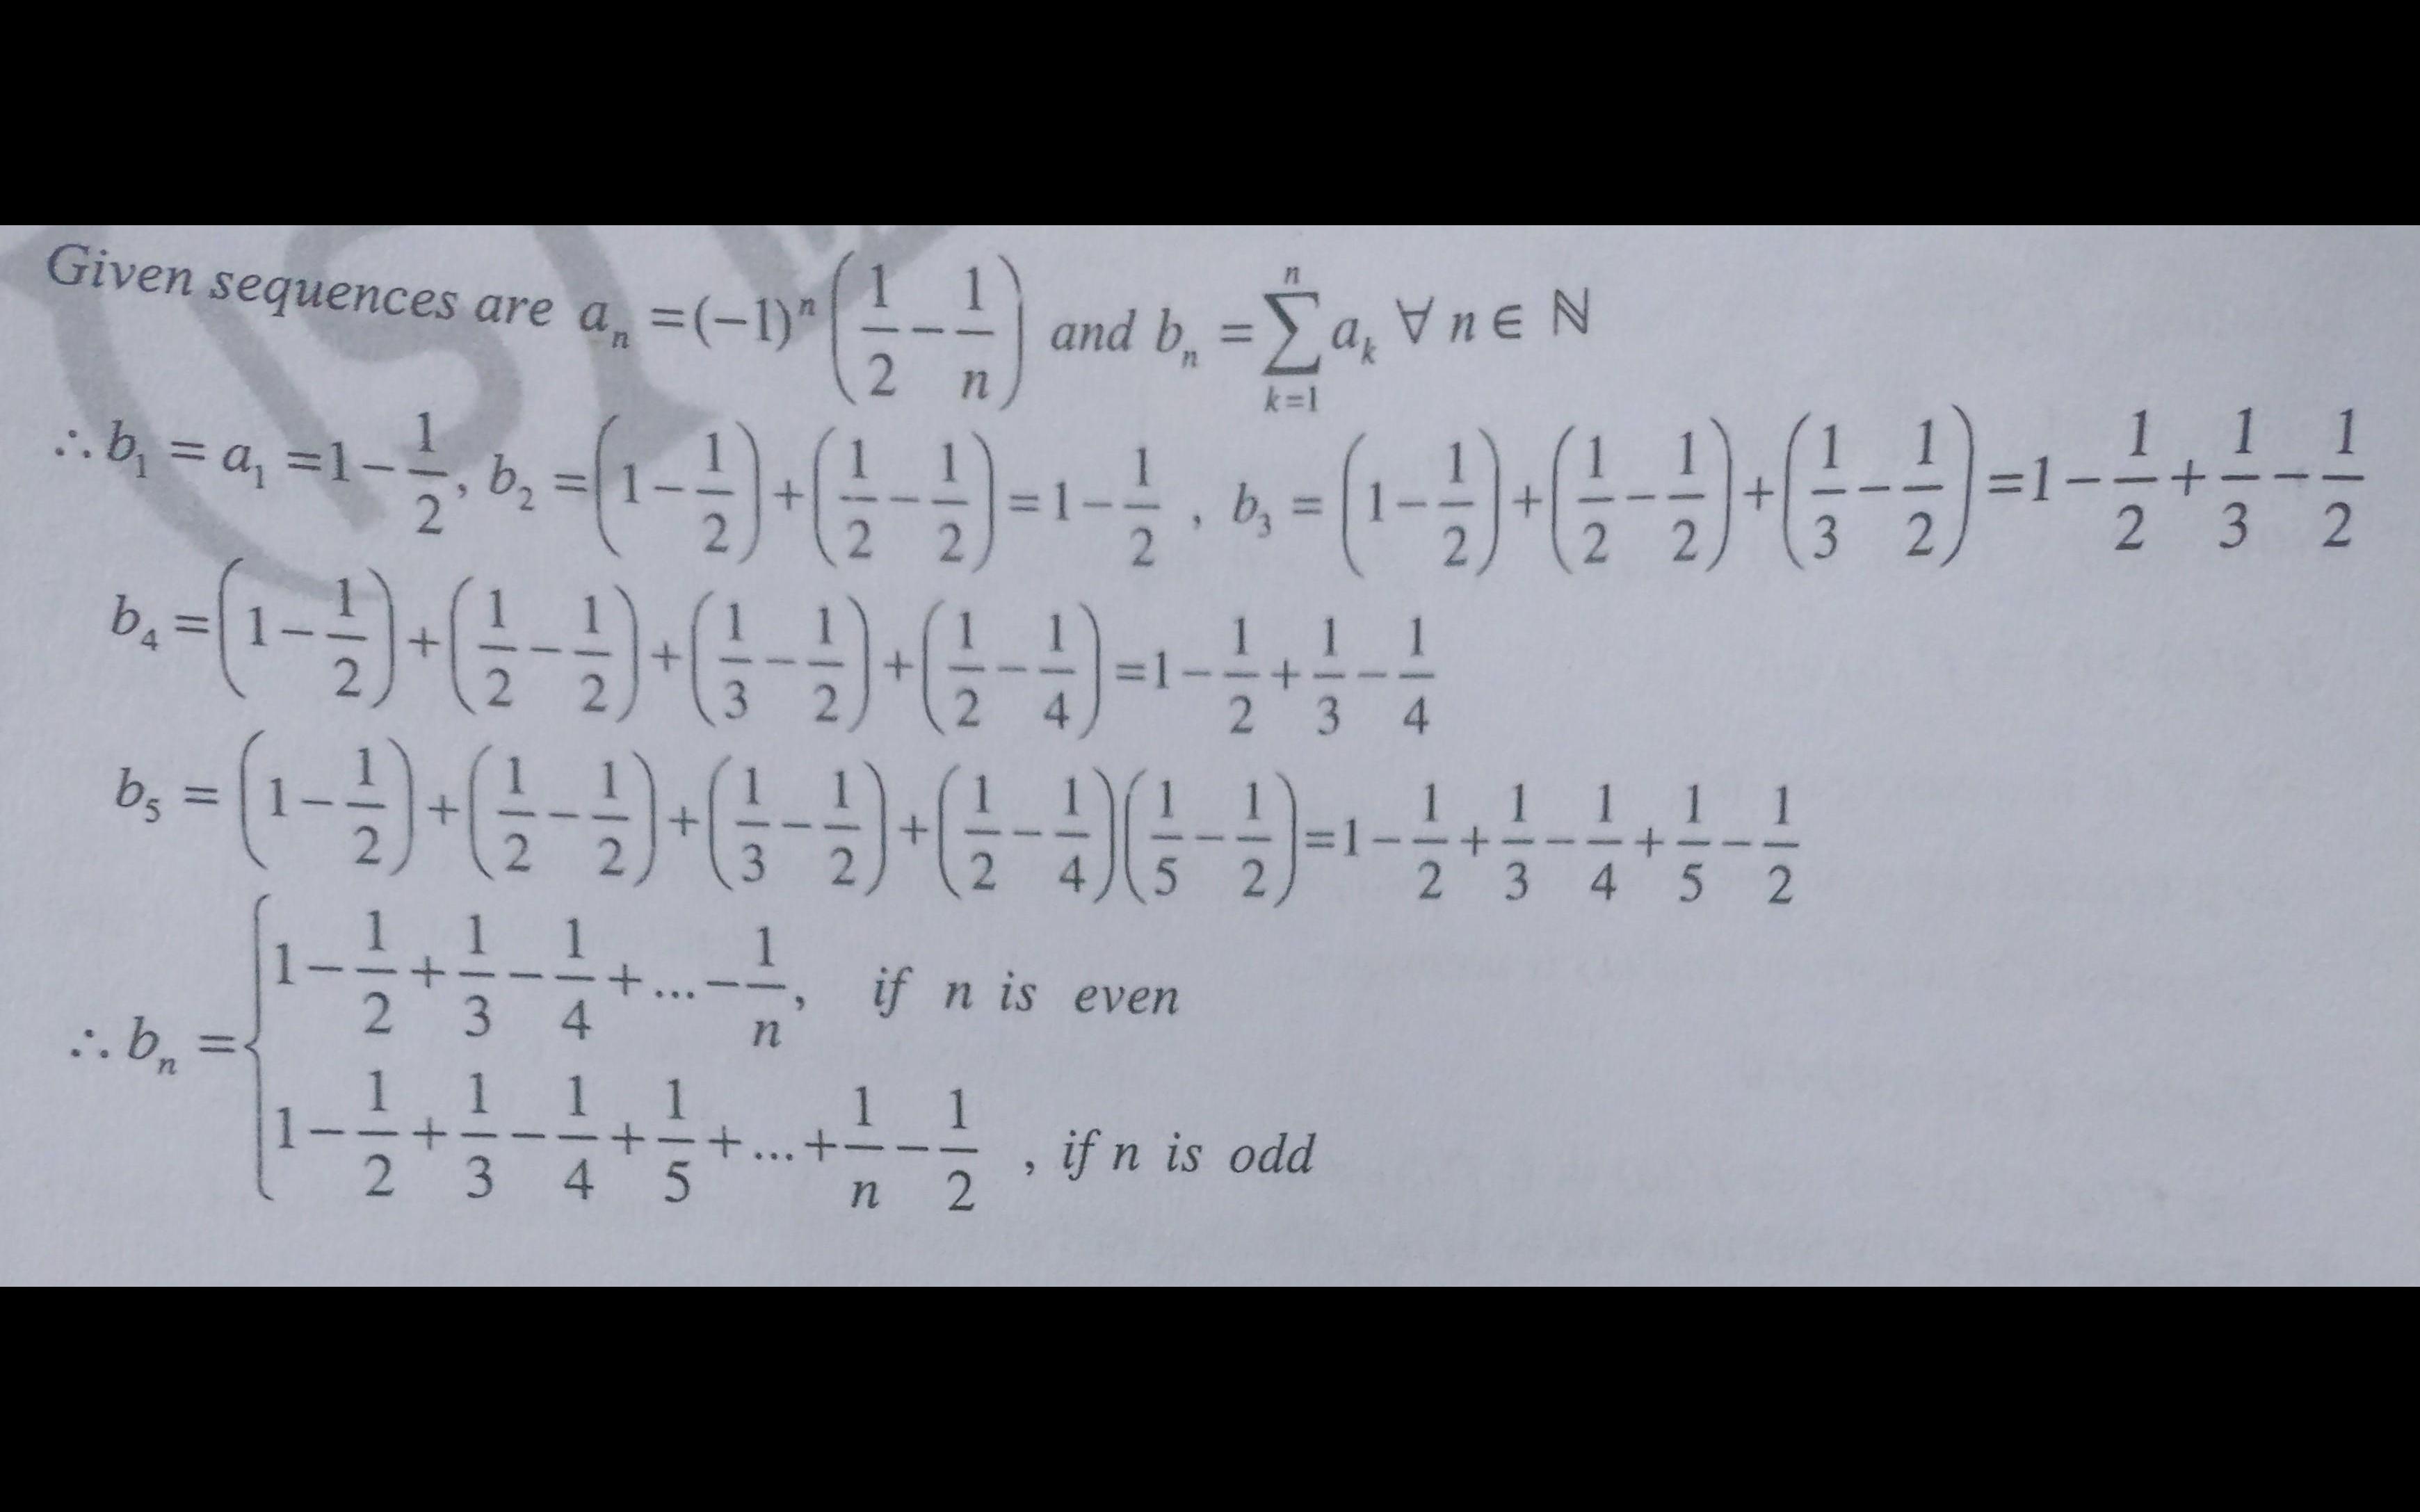 Given sequences are aₙ = (−1)ⁿ (1/2 − 1/n) and bₙ = ∑_{k=1}^{n} aₖ ∀ n ∈ ℕ
∴ b₁ = a₁ = 1 − 1/2, b₂ = (1 − 1/2) + (1/2 − 1/2) = 1 − 1/2 , b₃ = (1 − 1/2) + (1/2 − 1/2) + (1/3 − 1/2) = 1 − 1/2 + 1/3 − 1/2
b₄ = (1 − 1/2) + (1/2 − 1/2) + (1/3 − 1/2) + (1/2 − 1/4) = 1 − 1/2 + 1/3 − 1/4
b₅ = (1 − 1/2) + (1/2 − 1/2) + (1/3 − 1/2) + (1/2 − 1/4)(1/5 − 1/2) = 1 − 1/2 + 1/3 − 1/4 + 1/5 − 1/2
∴ bₙ = { 1 − 1/2 + 1/3 − 1/4 + ... − 1/n, if n is even
1 − 1/2 + 1/3 − 1/4 + 1/5 + ... + 1/n − 1/2 , if n is odd